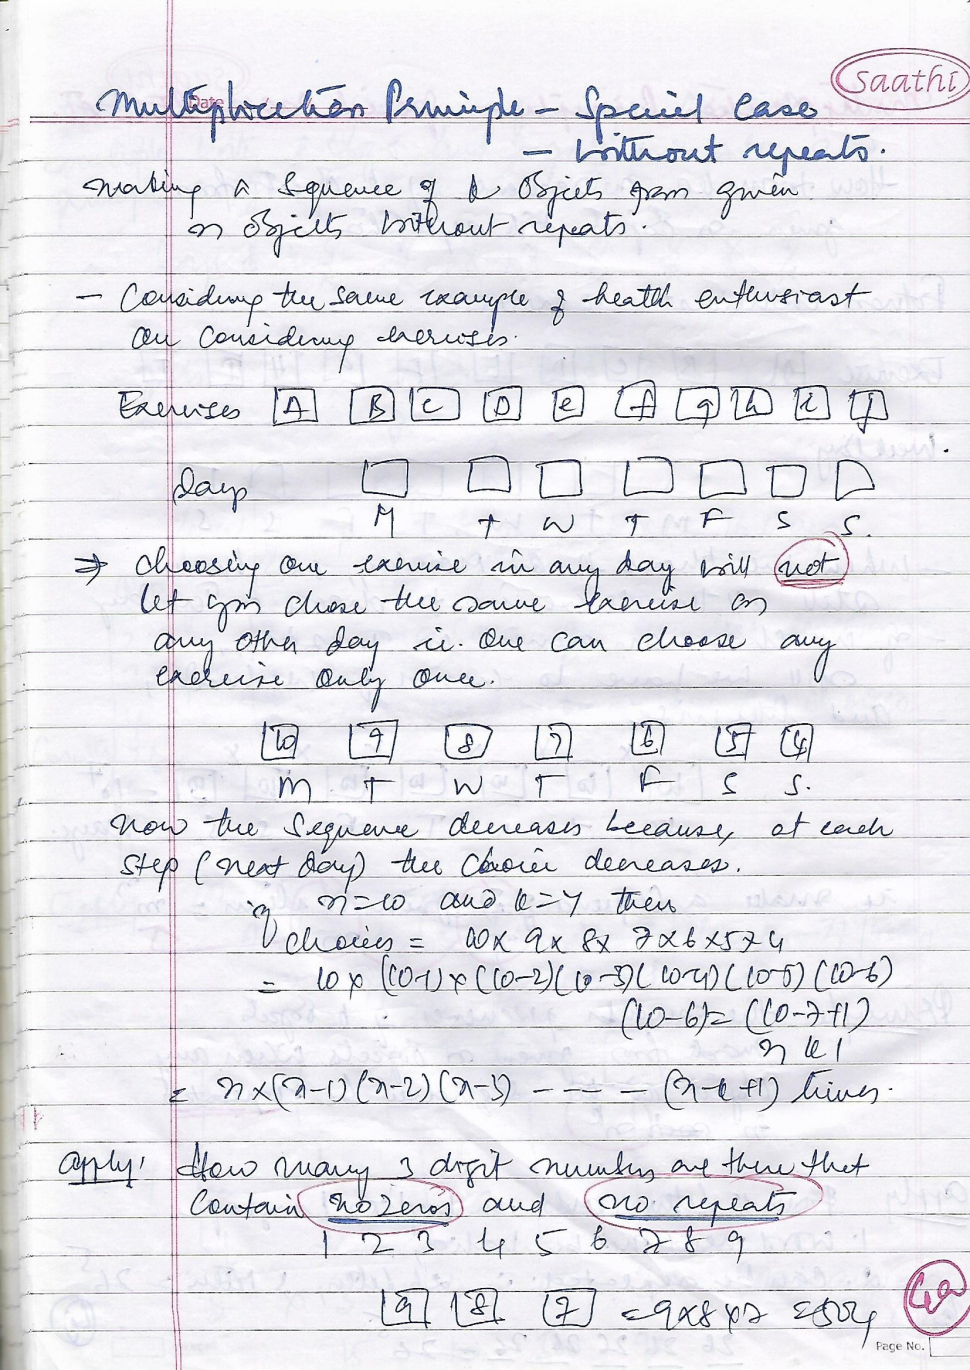 Saathi
Date
Multiplication Principle - Special Case
- Without repeats.
making a sequence of k objects from given
n objects without repeats.
- Considering the same example of health enthusiast
on considering exercises.
Exercises A B C D e f g h i j
days
M T W T F S S.
⇒ Choosing one exercise in any day will not
let you chose the same exercise on
any other day ie. One can choose any
exercise only once.
10 9 8 7 6 5 4
M T W T F S S.
Now the sequence decreases because, at each
step (next day) the choice decreases.
if n=10 and k=7 then
choices = 10 x 9 x 8 x 7 x 6 x 5 x 4
= 10 x (10-1) x (10-2) (10-3) (10-4) (10-5) (10-6)
(10-6) = (10-7+1)
n k 1
= n x (n-1) (n-2) (n-3) ---- (n-k+1) times.
Apply! How many 3 digit numbers are there that
contain no zeros and no repeats
1 2 3 4 5 6 7 8 9
9 8 7 = 9 x 8 x 7 = 504
Page No.